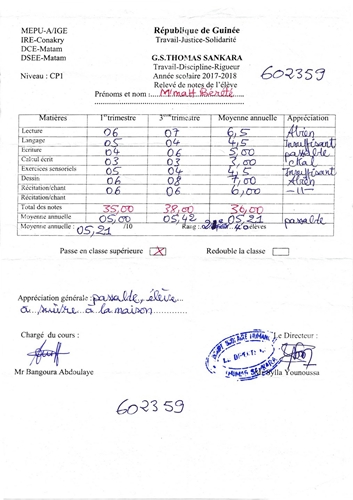 MEPU-A/IGE
IRE-Conakry
DCE-Matam
DSEE-Matam
Niveau : CP1
République de Guinée
Travail-Justice-Solidarité
G.S.THOMAS SANKARA
Travail-Discipline-Rigueur
Année scolaire 2017-2018
Relevé de notes de l'élève
602359
Prénoms et nom : M'matt Béreté
Matières 1er trimestre 3ème trimestre Moyenne annuelle Appréciation
Lecture 06 07 6,5 A.bien
Langage 05 04 4,5 Insuffisant
Ecriture 04 06 5,00 passable
Calcul écrit 03 03 3,00 Mal
Exercices sensoriels 05 04 4,5 Insuffisant
Dessin 06 08 7,00 A.bien
Récitation/chant 06 06 6,00 -11-
Récitation/chant
Total des notes 35,00 38,00 36,00
Moyenne annuelle 05,00 05,42 05,21 passable
Moyenne annuelle : 05,21 /10 Rang : 40 élèves
Passe en classe supérieure X Redouble la classe
Appréciation générale : passable, élève
à suivre à la maison
Chargé du cours : Le Directeur :
Mr Bangoura Abdoulaye Sylla Younoussa
602359